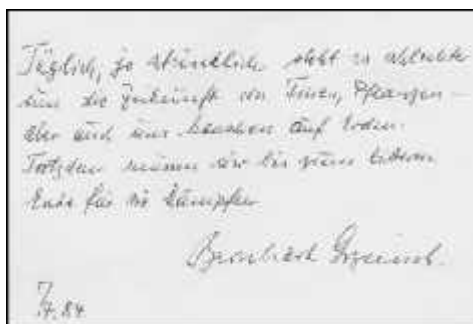 Täglich, ja stündlich steht es schlechter
um die Zukunft von Tieren, Pflanzen –
aber auch uns Menschen auf Erden.
Trotzdem müssen wir bis zum bitteren
Ende für sie kämpfen
Bernhard Grzimek.
7.84